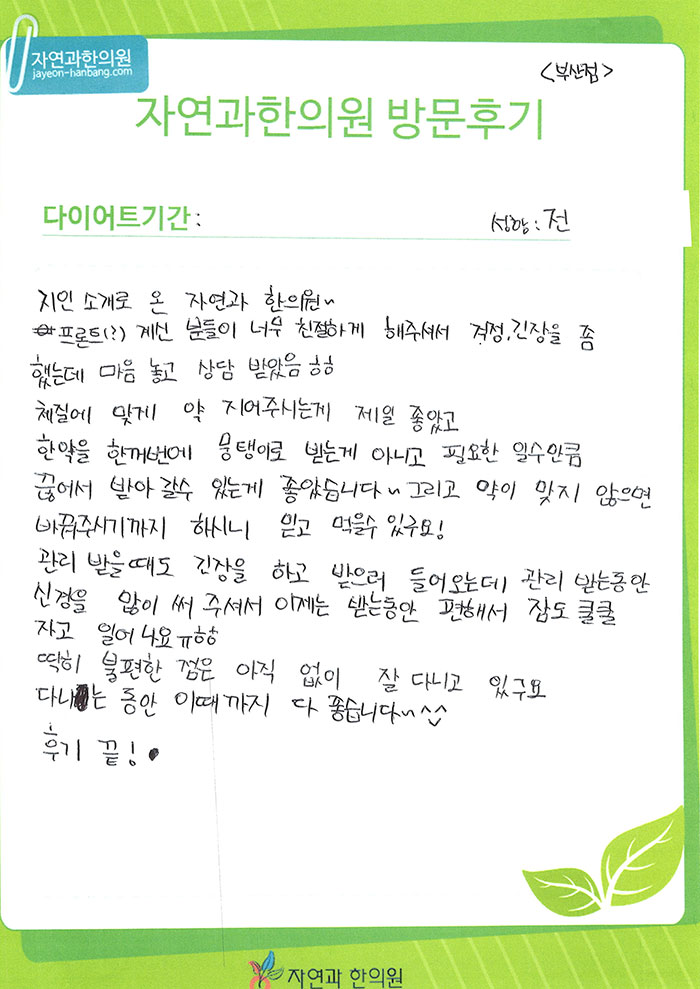 자연과한의원
jayeon-hanbang.com
<부산점>
자연과한의원 방문후기
다이어트기간 : 성함 : 전
지인 소개로 온 자연과 한의원~
프론트(?) 계신 분들이 너무 친절하게 해주셔서 걱정,긴장을 좀
했는데 마음 놓고 상담 받았음 ㅎㅎ
체질에 맞게 약 지어주시는게 제일 좋았고
한약을 한꺼번에 뭉탱이로 받는게 아니고 필요한 일수만큼
끊어서 받아 갈수 있는게 좋았습니다~ 그리고 약이 맞지 않으면
바꿔주시기까지 하시니 믿고 먹을수 있구요!
관리 받을때도 긴장을 하고 받으러 들어오는데 관리 받는동안
신경을 많이 써 주셔서 이제는 받는동안 편해서 잠도 쿨쿨
자고 일어나요ㅠㅎㅎ
딱히 불편한 점은 아직 없이 잘 다니고 있구요
다니는 동안 이때까지 다 좋습니다~^^
후기 끝!
자연과 한의원